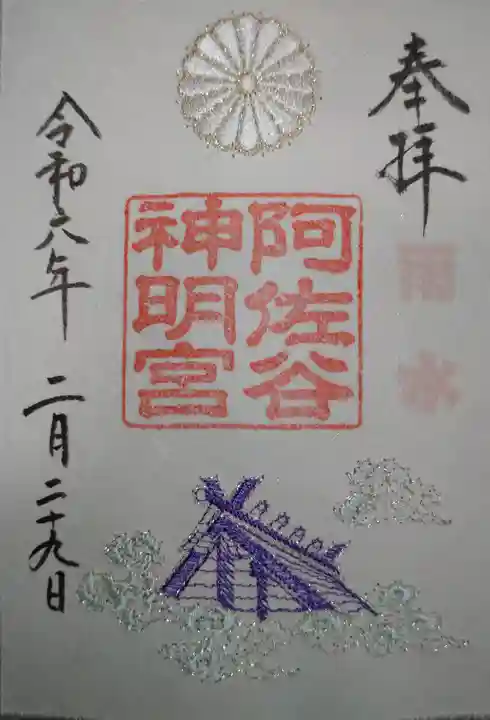 奉拝
阿佐谷
神明宮
令和六年 二月二十九日